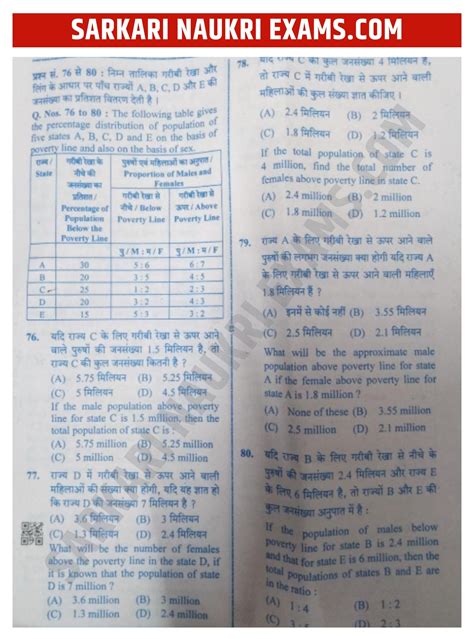 SARKARI NAUKRI EXAMS.COM
प्रश्न सं. 76 से 80 : निम्न तालिका गरीबी रेखा और
लिंग के आधार पर पाँच राज्यों A, B, C, D और E की
जनसंख्या का प्रतिशत वितरण देती है ।
Q. Nos. 76 to 80 : The following table gives
the percentage distribution of population of
five states A, B, C, D and E on the basis of
poverty line and also on the basis of sex.
राज्य / State
गरीबी रेखा के नीचे की जनसंख्या का प्रतिशत / Percentage of Population Below the Poverty Line
पुरुषों एवं महिलाओं का अनुपात / Proportion of Males and Females
गरीबी रेखा से नीचे / Below Poverty Line
गरीबी रेखा से ऊपर / Above Poverty Line
पु/M : म/F पु/M : म/F
A 30 5 : 6 6 : 7
B 20 3 : 5 4 : 5
C 25 1 : 2 2 : 3
D 15 3 : 2 4 : 3
E 20 5 : 3 3 : 2
76. यदि राज्य C के लिए गरीबी रेखा से ऊपर आने
वाले पुरुषों की जनसंख्या 1.5 मिलियन है, तो
राज्य C की कुल जनसंख्या कितनी है ?
(A) 5.75 मिलियन (B) 5.25 मिलियन
(C) 5 मिलियन (D) 4.5 मिलियन
If the male population above poverty
line for state C is 1.5 million, then the
total population of state C is :
(A) 5.75 million (B) 5.25 million
(C) 5 million (D) 4.5 million
77. यदि राज्य D में गरीबी रेखा से ऊपर आने वाली
महिलाओं की संख्या क्या होगी, यदि यह ज्ञात हो
कि राज्य D की जनसंख्या 7 मिलियन है ?
(A) 3.6 मिलियन (B) 3 मिलियन
(C) 1.3 मिलियन (D) 2.4 मिलियन
What will be the number of females
above the poverty line in the state D, if
it is known that the population of state
D is 7 million ?
(A) 3.6 million (B) 3 million
(C) 1.3 million (D) 2.4 million
78. यदि राज्य C की कुल जनसंख्या 4 मिलियन है,
तो राज्य C में गरीबी रेखा से ऊपर आने वाली
महिलाओं की कुल संख्या ज्ञात कीजिए ।
(A) 2.4 मिलियन (B) 2 मिलियन
(C) 1.8 मिलियन (D) 1.2 मिलियन
If the total population of state C is
4 million, find the number of
females above poverty line in state C.
(A) 2.4 million (B) 2 million
(C) 1.8 million (D) 1.2 million
79. राज्य A के लिए गरीबी रेखा से ऊपर आने वाले
पुरुषों की लगभग जनसंख्या क्या होगी यदि राज्य A
के लिए गरीबी रेखा से ऊपर आने वाली महिलाएँ
1.8 मिलियन हैं ?
(A) इनमें से कोई नहीं (B) 3.55 मिलियन
(C) 2.5 मिलियन (D) 2.1 मिलियन
What will be the approximate male
population above poverty line for state
A if the female above poverty line for
state A is 1.8 million ?
(A) None of these (B) 3.55 million
(C) 2.5 million (D) 2.1 million
80. यदि राज्य B के लिए गरीबी रेखा से नीचे के
पुरुषों की जनसंख्या 2.4 मिलियन और राज्य E
के लिए 6 मिलियन है, तो राज्यों B और E की
कुल जनसंख्या का अनुपात है :
If the population of males below
poverty line for state B is 2.4 million
and for state E is 6 million, then the
total populations of states B and E are
in the ratio :
(A) 1 : 4 (B) 1 : 2
(C) 2 : 3 (D) 2 : 5
SARKARI NAUKRI EXAMS.COM